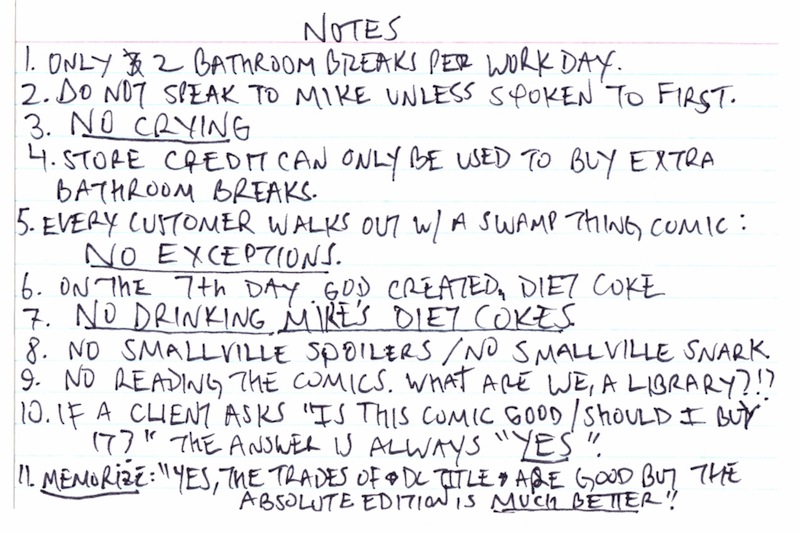 NOTES
1. ONLY 2 BATHROOM BREAKS PER WORK DAY.
2. DO NOT SPEAK TO MIKE UNLESS SPOKEN TO FIRST.
3. NO CRYING
4. STORE CREDIT CAN ONLY BE USED TO BUY EXTRA
BATHROOM BREAKS.
5. EVERY CUSTOMER WALKS OUT W/ A SWAMP THING COMIC:
NO EXCEPTIONS.
6. ON THE 7th DAY GOD CREATED DIET COKE
7. NO DRINKING MIKE'S DIET COKES
8. NO SMALLVILLE SPOILERS / NO SMALLVILLE SNARK
9. NO READING THE COMICS. WHAT ARE WE, A LIBRARY?!?
10. IF A CLIENT ASKS "IS THIS COMIC GOOD / SHOULD I BUY
IT?" THE ANSWER IS ALWAYS "YES".
11. MEMORIZE: "YES, THE TRADES OF DC TITLE ARE GOOD BUT THE
ABSOLUTE EDITION IS MUCH BETTER".